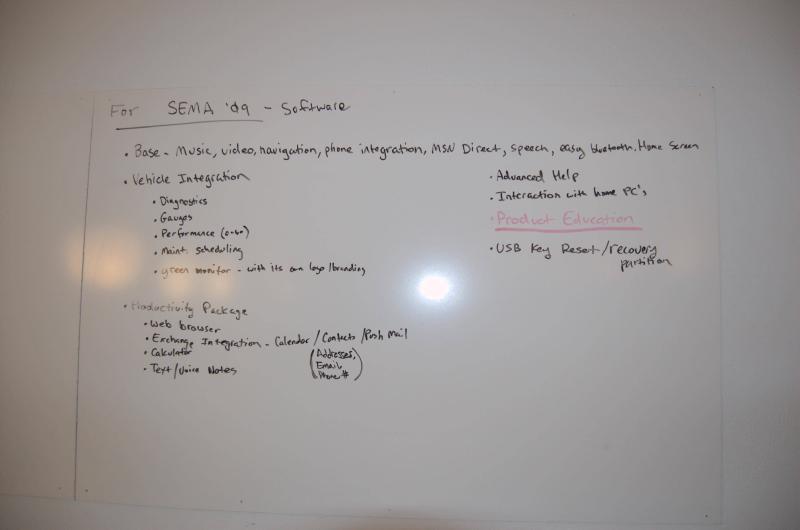 For SEMA '09 - Software
• Base - Music, video, navigation, phone integration, MSN Direct, speech, easy bluetooth, Home Screen
• Vehicle Integration
• Diagnostics
• Gauges
• Performance (0-60)
• Maint. scheduling
• green monitor - with its own logo/branding
• Productivity Package
• Web browser
• Exchange Integration - Calendar / Contacts / Push Mail
(Addresses,
Email,
Phone #)
• Calculator
• Text/Voice Notes
• Advanced Help
• Interaction with home PC's
• Product Education
• USB Key Reset/recovery
partition